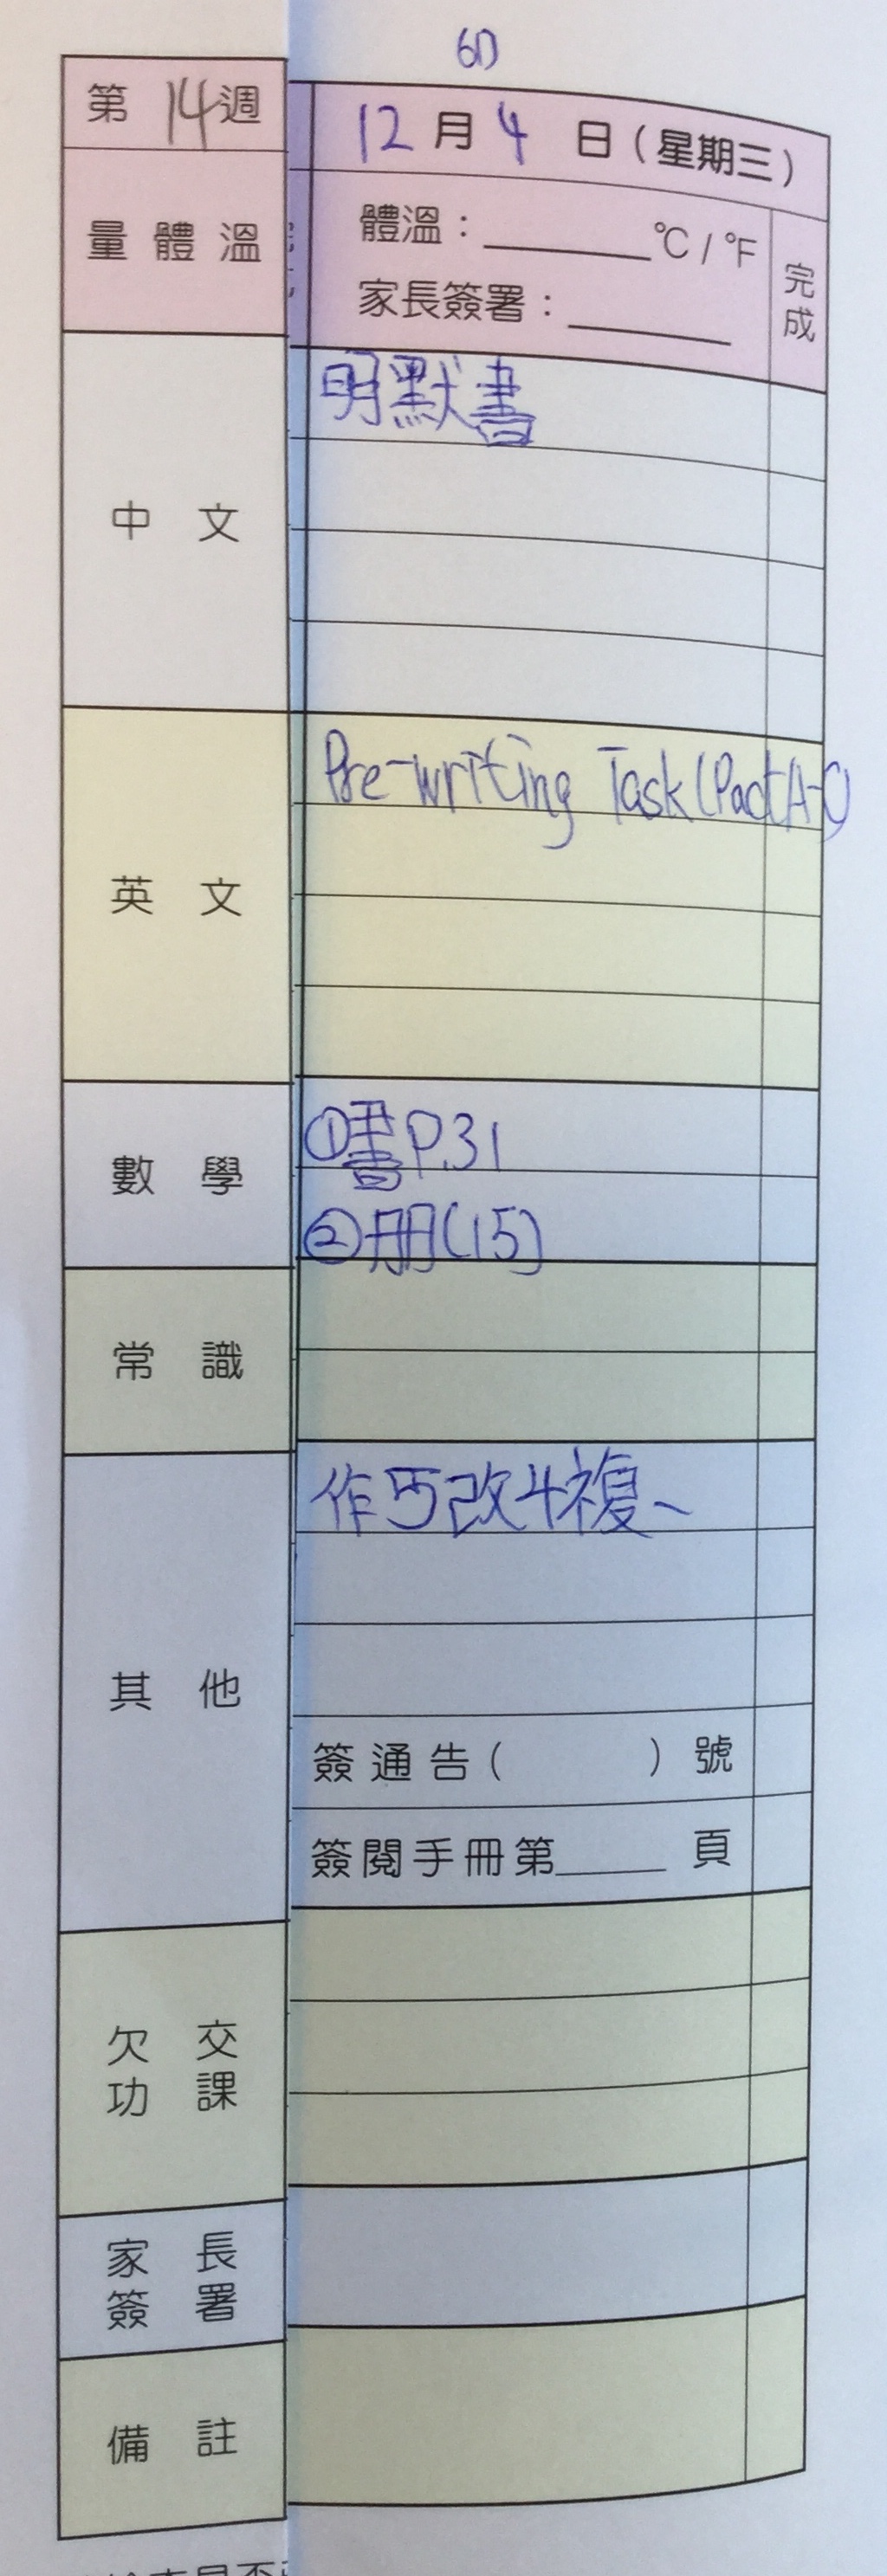 6D
第 14 週
12 月 4 日（星期三）
量體溫
體溫：______°C / °F
家長簽署：______
完成
中文
明默書
英文
Pre-writing Task (Part A-C)
數學
①書P.31
②册(15)
常識
其他
作 改 複
簽通告（ ）號
簽閱手冊第______頁
欠交功課
家長簽署
備註